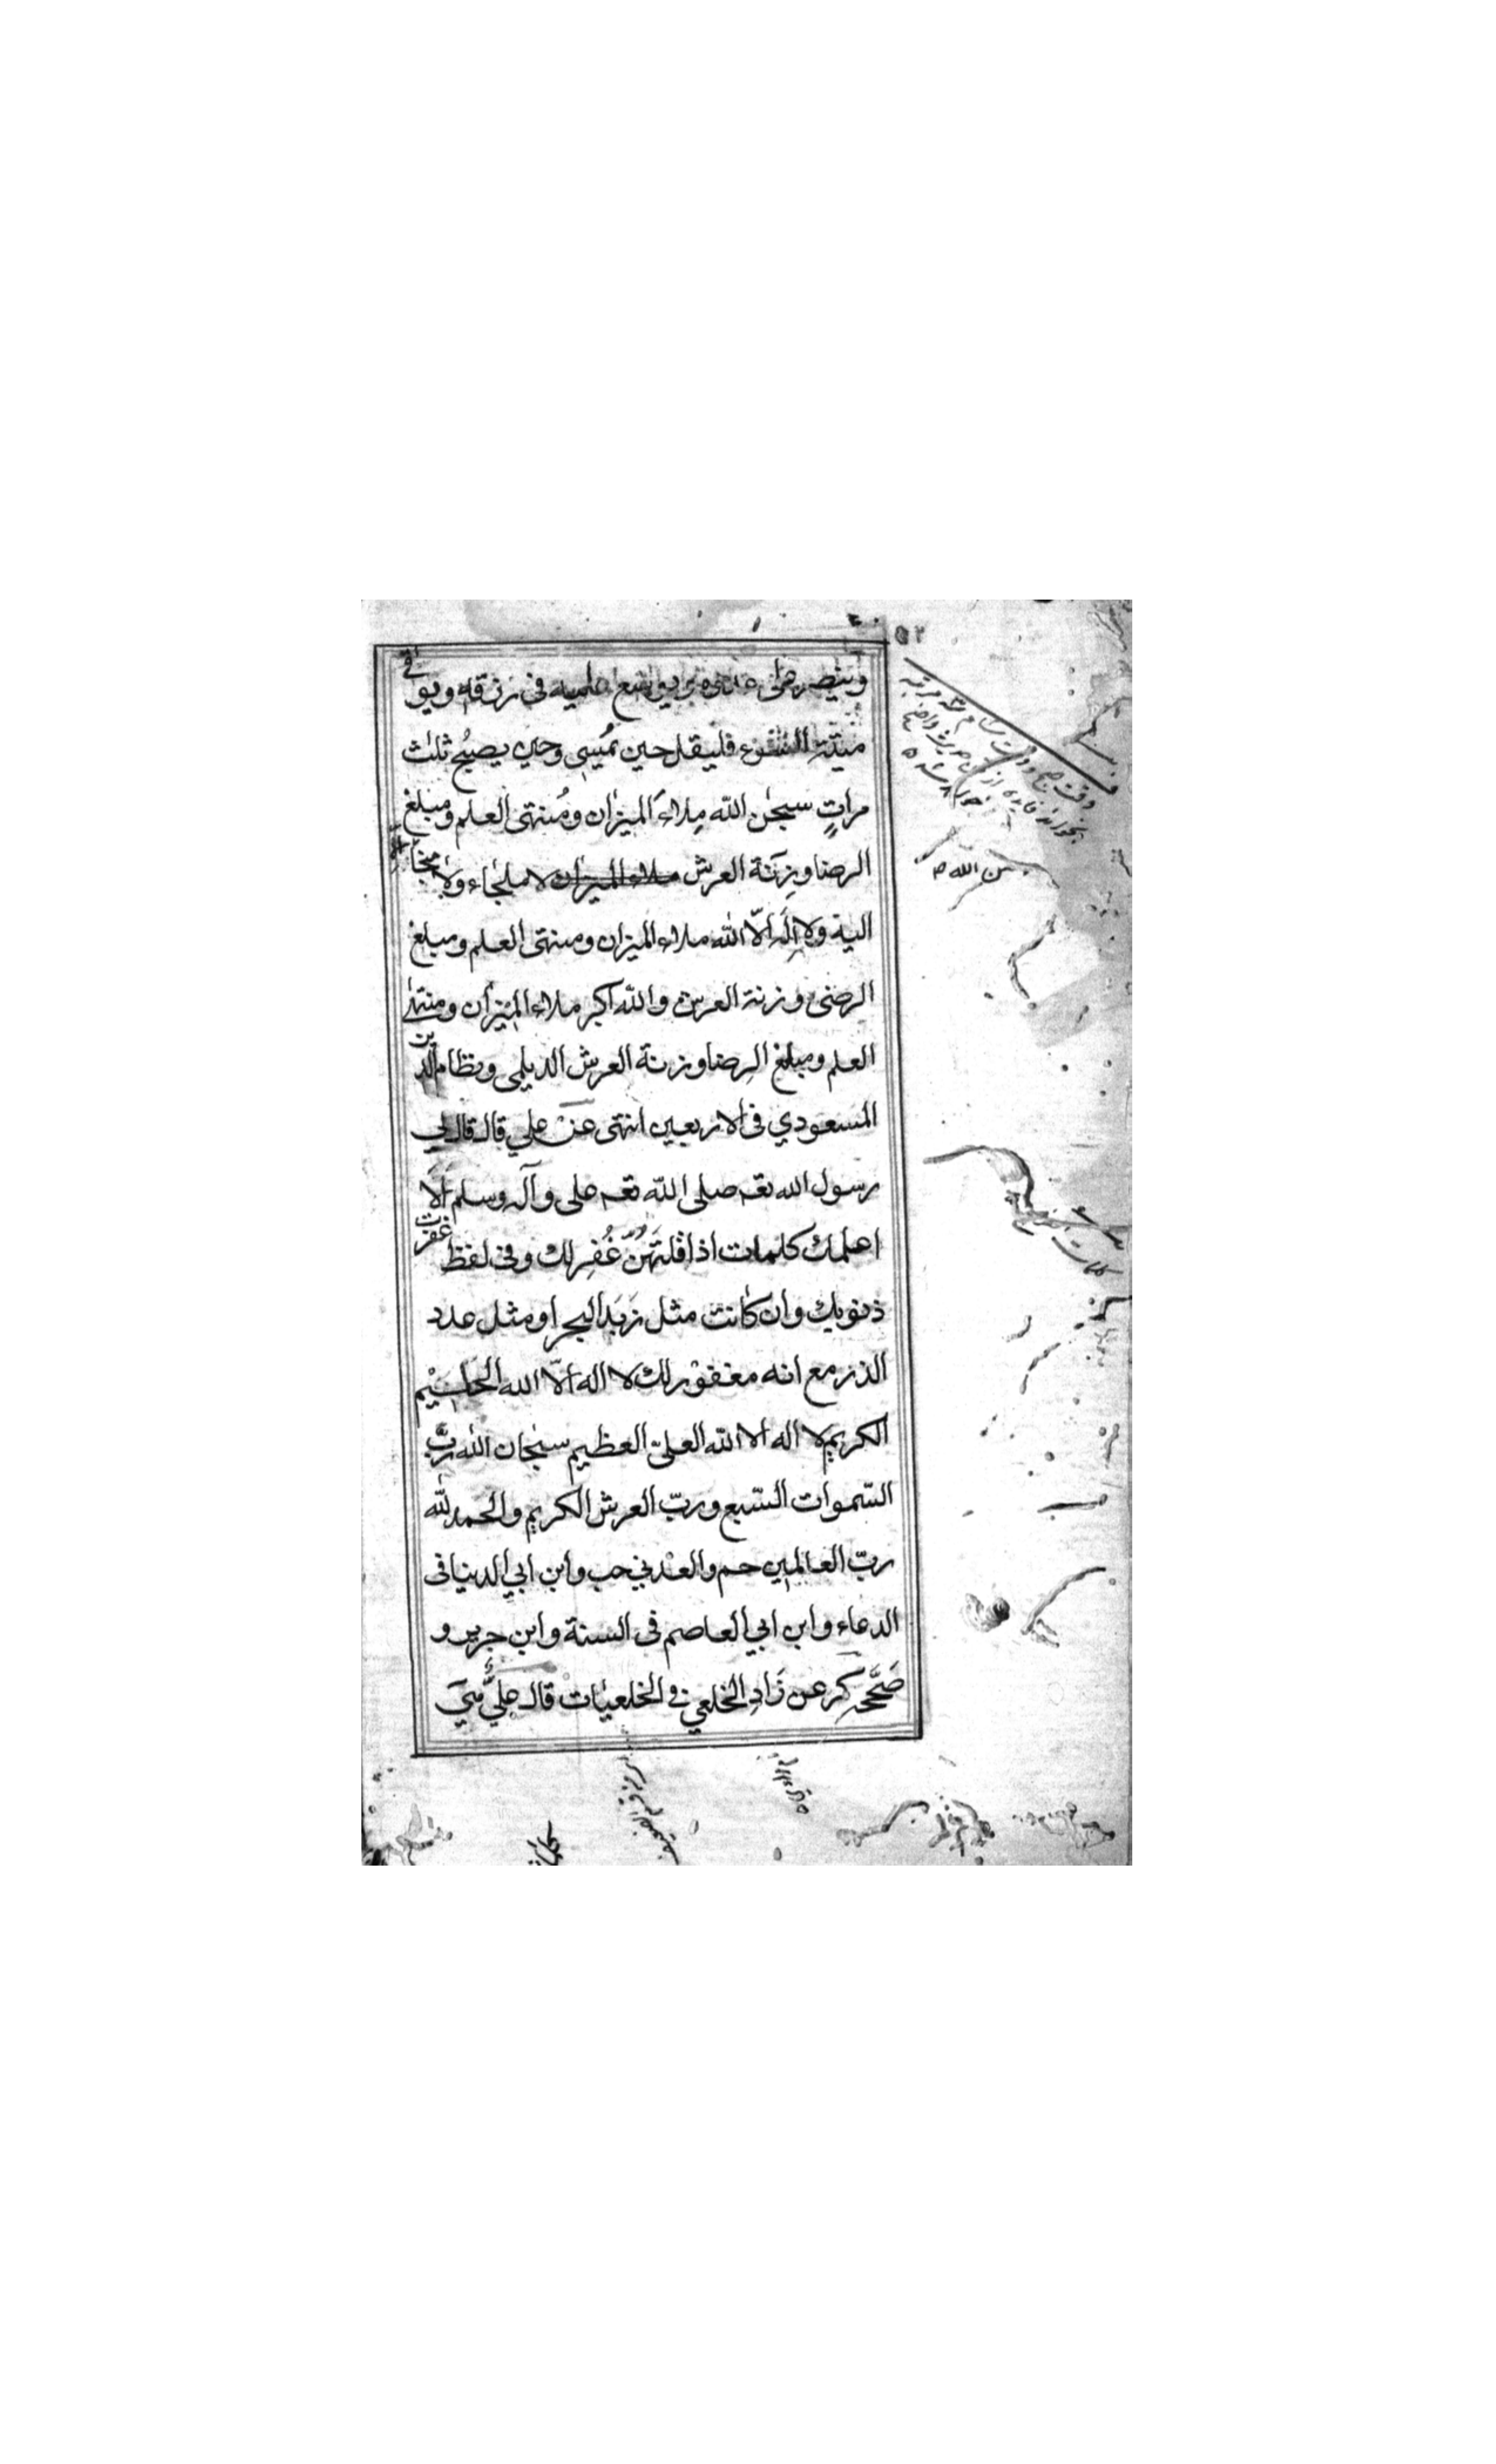 ٥٢
وينصر على عدوه ويوسع عليه فى رزقه ويوقى
ميتة السّوء فليقل حين يُمسِى وحين يصبُح ثلٰث
مراتٍ سبحٰن اللّه مِلاءَ الميزان ومُنتهى العلم ومبلغ
الرضا وزِنَة العرش ملاء الميزان لا ملجاء ولا منجا
اليه ولا اِلَه الّا اللّٰه ملاء الميزان ومنتهى العلم ومبلغ
الرضى وزنة العرش واللّه اكبر ملاء الميزان ومنتهى
العلم ومبلغ الرِضا وزنة العرش الديلمى ونظام الدين
المسعودي فى الاربعين انتهى عنْ علي قال قال لي
رسول الله تعہ صلى اللّه تعہ على وآله وسلم اَلَا
اعلمك كلمات اذا قلتَهُنّ غُفِر لك وفى لفظ غفرت
ذنوبك وان كانت مثل زَبَد البحر او مثل عدد
الذر مع انه مغفوْر لك لا اله الّا الله الحَليْم
الكريم لا اله الا اللّه العلىّ العظيم سبحان اللّٰه ربّ
السّموات السّبع وربّ العرش الكريم والحمد للّه
ربّ العالمين حم والعدني حب وابن ابي الدنيا فى
الدعاء وابن ابي العاصم فى السنة وابن جرير و
صَحَّحہ كر عن زَادِ الخلعي في الخلعيات قال علِيٌّ
من الله
كلمات